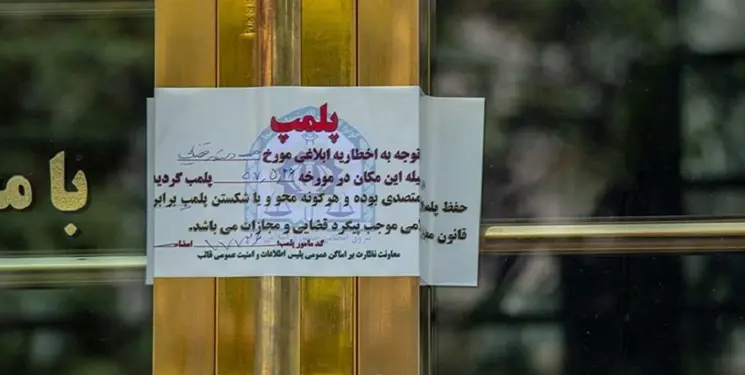 پلمپ
توجه به اخطاریه ابلاغی مورخ
یله این مکان در مورخه پلمب گردید
حفظ پلمپ متصدی بوده و هرگونه محو و یا شکستن پلمپ برابر
قانون می موجب پیگرد قضایی و مجازات می باشد.
کد مامور پلمپ: امضاء
معاونت نظارت بر اماکن عمومی پلیس اطلاعات و امنیت عمومی فاتب
با م